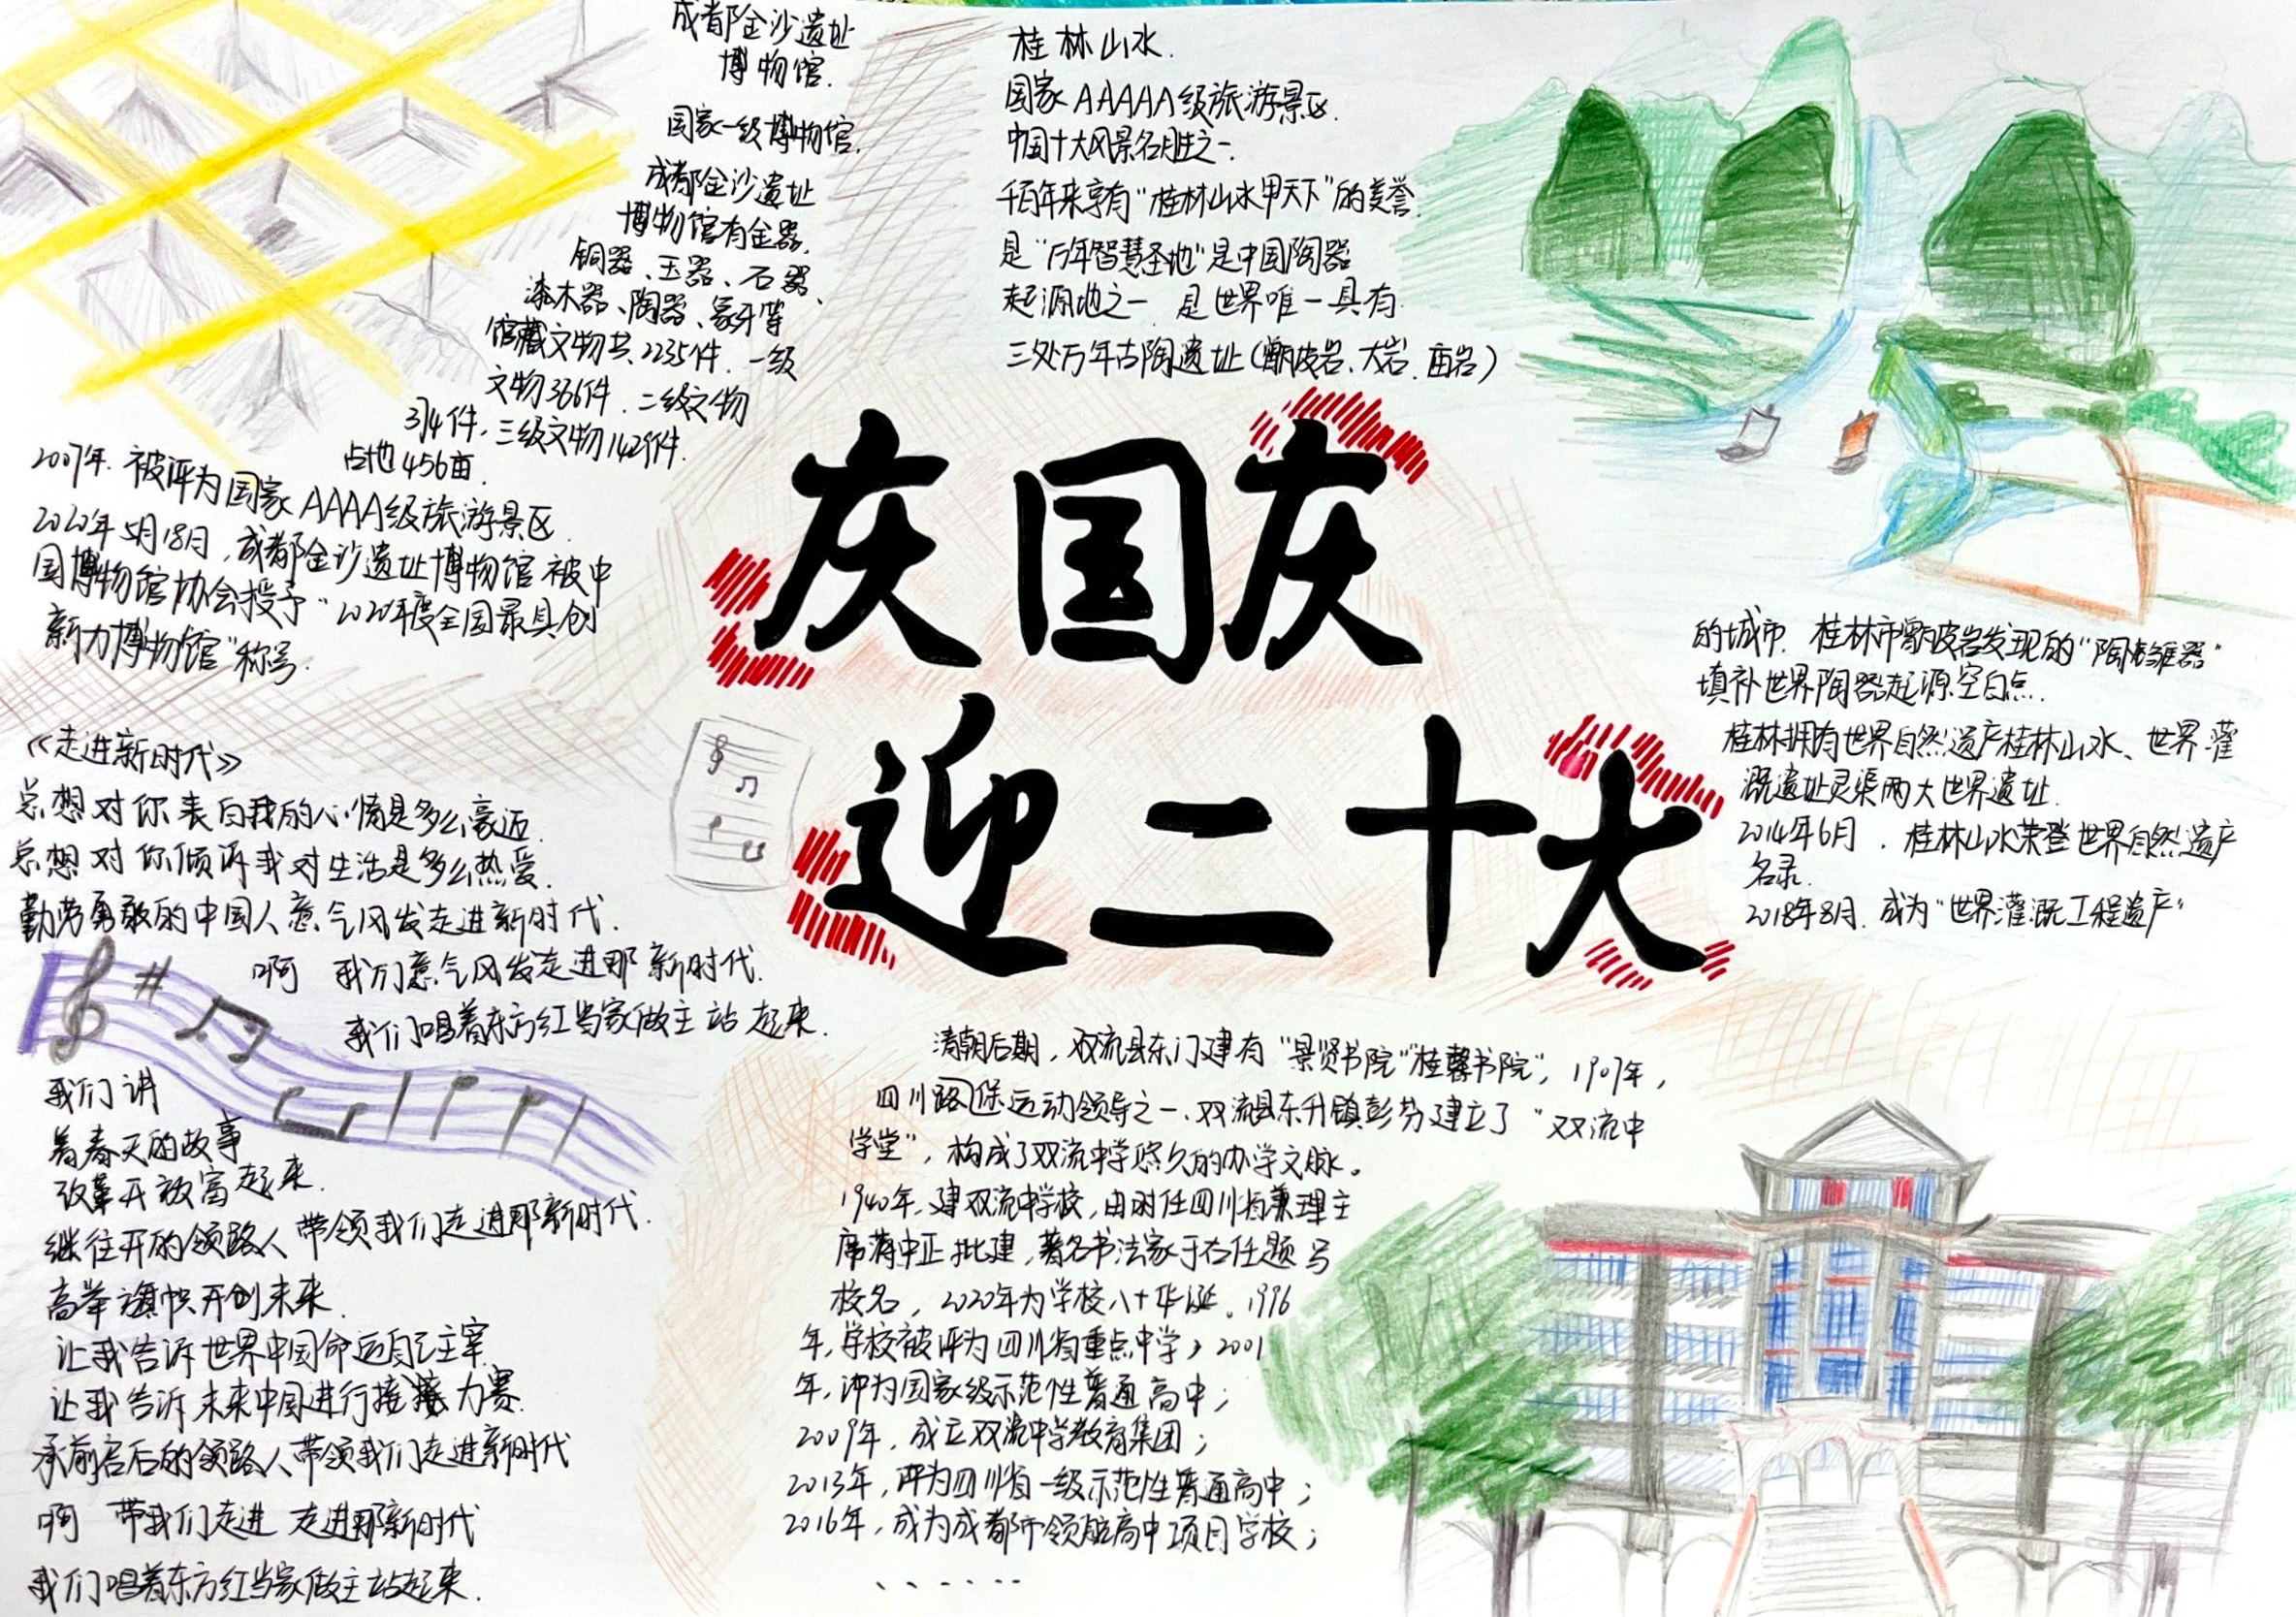 成都金沙遗址
博物馆.
国家一级博物馆.
成都金沙遗址
博物馆有金器,
铜器、玉器、石器、
漆木器、陶器、象牙等
馆藏文物共2235件.一级
文物366件.二级文物
314件,三级文物1429件.
占地456亩.
2007年.被评为国家AAAA级旅游景区.
2020年5月18日,成都金沙遗址博物馆被中
国博物馆协会授予“2020年度全国最具创
新力博物馆”称号.
桂林山水.
国家AAAAA级旅游景区.
中国十大风景名胜之一.
千百年来享有“桂林山水甲天下”的美誉.
是“万年智慧圣地”是中国陶器
起源地之一 是世界唯一具有
三处万年古陶遗址(甑皮岩、大岩、庙岩)
的城市.桂林市甑皮岩发现的“陶雏器”
填补世界陶器起源空白点.
桂林拥有世界自然遗产桂林山水、世界灌
溉遗址灵渠两大世界遗址.
2014年6月.桂林山水荣登世界自然遗产
名录.
2018年8月.成为“世界灌溉工程遗产”
庆国庆
迎二十大
《走进新时代》
总想对你表白我的心情是多么豪迈.
总想对你倾诉我对生活是多么热爱.
勤劳勇敢的中国人意气风发走进新时代.
啊 我们意气风发走进那新时代.
我们唱着东方红当家做主站起来.
我们讲
着春天的故事
改革开放富起来.
继往开的领路人带领我们走进那新时代.
高举旗帜开创未来.
让我告诉世界中国命运自己主宰.
让我告诉未来中国进行接力赛.
承前启后的领路人带领我们走进新时代
啊 带我们走进 走进那新时代
我们唱着东方红当家做主站起来.
清朝后期,双流县东门建有“景贤书院”“桂馨书院”,1907年,
四川路保运动领导之一、双流县东升镇彭芬建立了“双流中
学堂”,构成了双流中学悠久的办学文脉。
1940年,建双流中学校,由时任四川省兼理主
席蒋中正批建,著名书法家于右任题写
校名,2020年为学校八十华诞。1996
年,学校被评为四川省重点中学;2001
年,评为国家级示范性普通高中;
2009年,成立双流中学教育集团;
2013年,评为四川省一级示范性普通高中;
2016年,成为成都市领航高中项目学校;
......